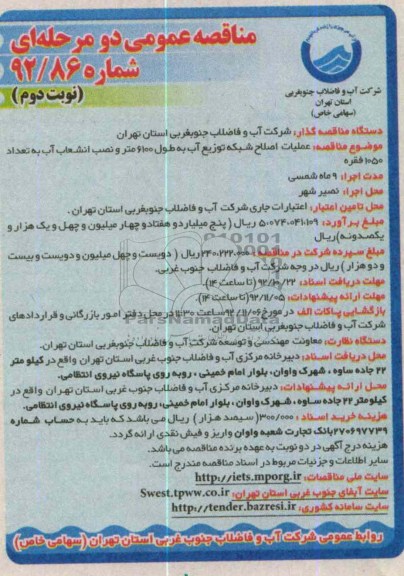 مناقصه عمومی دو مرحله‌ای
شماره ۹۲/۸۶
(نوبت دوم)
شرکت آب و فاضلاب جنوبغربی
استان تهران
(سهامی خاص)
دستگاه مناقصه گذار: شرکت آب و فاضلاب جنوبغربی استان تهران
موضوع مناقصه: عملیات اصلاح شبکه توزیع آب به طول ۶۱۰۰ متر و نصب انشعاب آب به تعداد
۱۰۵۰ فقره
مدت اجرا: ۹ ماه شمسی
محل اجرا: نصیر شهر
محل تامین اعتبار: اعتبارات جاری شرکت آب و فاضلاب جنوبغربی استان تهران .
مبلغ برآورد: ۵/۰۷۴/۰۴۱/۱۰۹ ریال ( پنج میلیارد و هفتاد و چهار میلیون و چهل و یک هزار و
یکصدونه) ریال
مبلغ سپرده شرکت در مناقصه: ۲۴۰/۲۲۲/۰۰۰ ریال ( دویست و چهل میلیون و دویست و بیست
و دو هزار ) ریال در وجه شرکت آب و فاضلاب جنوب غربی.
مهلت دریافت اسناد: ۹۲/۱۰/۲۲ (تا ساعت ۱۴).
مهلت ارائه پیشنهادات: ۹۲/۱۱/۰۵ (تا ساعت ۱۴).
بازگشایی پاکات الف در مورخ ۹۲/۱۱/۰۶ ساعت در محل دفتر امور بازرگانی و قراردادهای
شرکت آب و فاضلاب جنوبغربی استان تهران.
دستگاه نظارت: معاونت مهندسی و توسعه شرکت آب و فاضلاب جنوبغربی استان تهران.
محل دریافت اسناد: دبیرخانه مرکزی آب و فاضلاب جنوب غربی استان تهران واقع در کیلو متر
۲۲ جاده ساوه ، شهرک واوان، بلوار امام خمینی ، روبه روی پاسگاه نیروی انتظامی.
محل ارائه پیشنهادات: دبیرخانه مرکزی آب و فاضلاب جنوب غربی استان تهران واقع در
کیلومتر ۲۲ جاده ساوه ، شهرک واوان ، بلوار امام خمینی، روبه روی پاسگاه نیروی انتظامی.
هزینه خرید اسناد : ۳۰۰/۰۰۰ ( سیصد هزار ) ریال می باشد که باید به حساب شماره
۲۷۰۶۹۷۷۳۹ بانک تجارت شعبه واوان واریز و فیش نقدی ارائه گردد.
هزینه درج آگهی در دو نوبت به عهده برنده مناقصه می باشد.
سایر اطلاعات و جزئیات مربوط در اسناد مناقصه مندرج است.
سایت ملی مناقصات: http://iets.mporg.ir
سایت آبفای جنوب غربی استان تهران: Swest.tpww.co.ir
سایت سامانه کشوری: http://tender.bazresi.ir
روابط عمومی شرکت آب و فاضلاب جنوب غربی استان تهران (سهامی خاص)
ParsNamadData